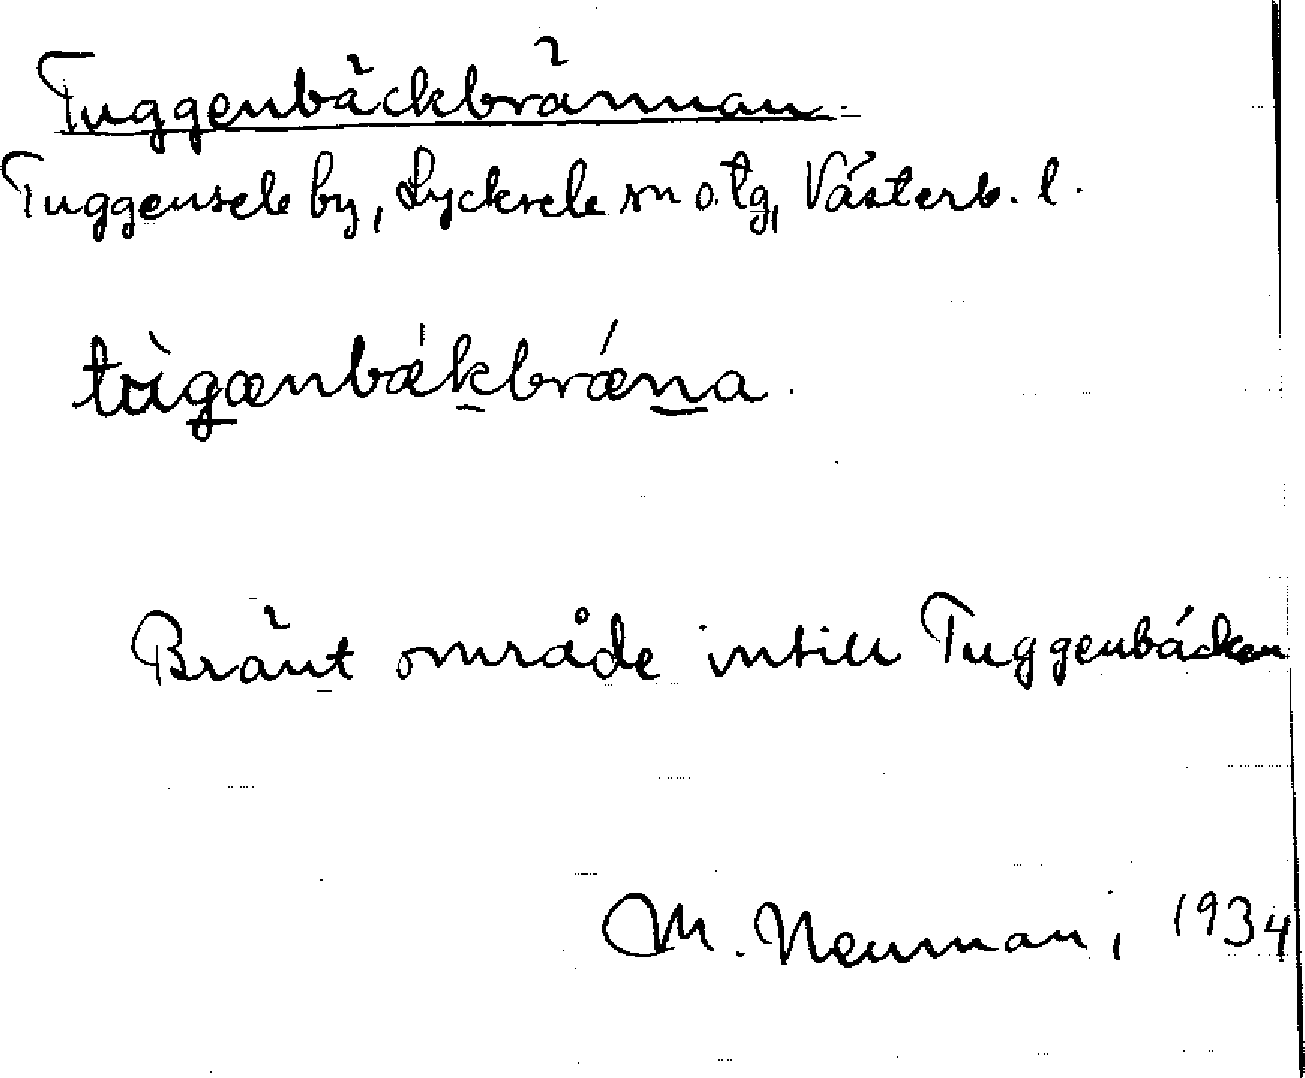 Tuggenbäckbrännan.
Tuggensele by, Lycksele sn o. tg, Västerb. l.
tùgænbækbræna.
Bränt område intill Tuggenbäcken
M. Neuman, 1934